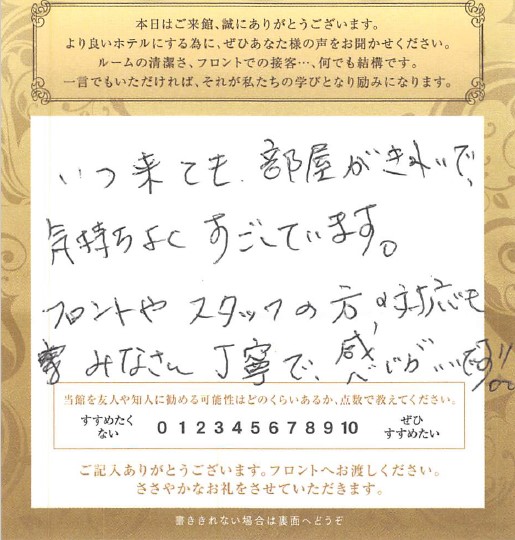 本日はご来館、誠にありがとうございます。
より良いホテルにする為に、ぜひあなた様の声をお聞かせください。
ルームの清潔さ、フロントでの接客…、何でも結構です。
一言でもいただければ、それが私たちの学びとなり励みになります。
いつ来ても、部屋がきれいで、
気持ちよく すごしています。
フロントや スタッフの 方の対応も
みなさん 丁寧で、感じがいいです!!
当館を友人や知人に勧める可能性はどのくらいあるか、点数で教えてください。
すすめたくない 0 1 2 3 4 5 6 7 8 9 10 ぜひすすめたい
ご記入ありがとうございます。フロントへお渡しください。
ささやかなお礼をさせていただきます。
書ききれない場合は裏面へどうぞ